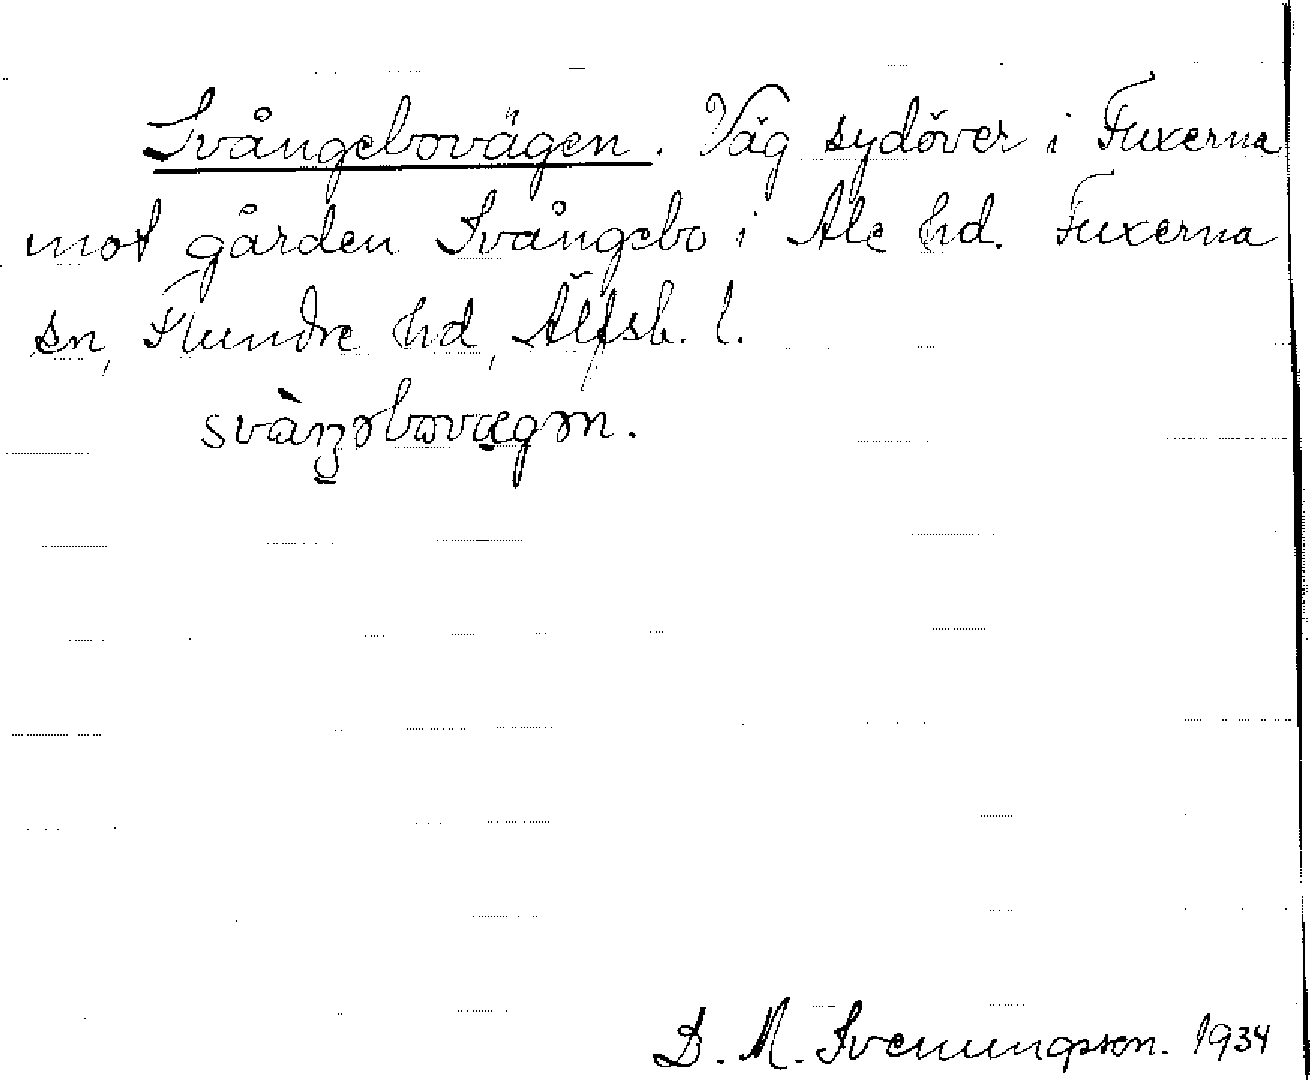 Svångebovägen. Väg sydöver i Fuxerna
mot gården Svångebo i Ale hd. Fuxerna
sn, Flundre hd, Älfsb. l.
D. M. Svenungsson. 1934